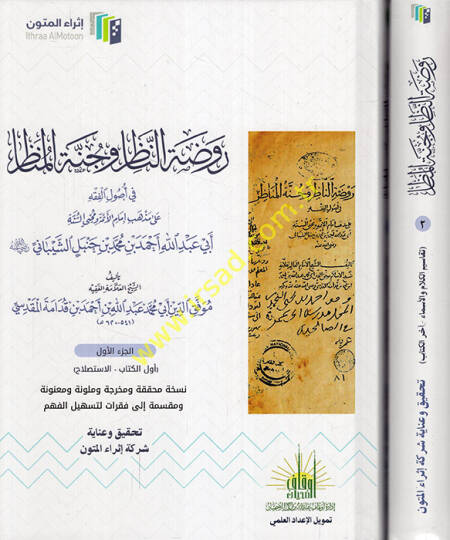 إثراء المتون
Ithraa AlMotoon
روضة الناظر وجنة المناظر
في أصول الفقه
على مذهب إمام الأئمة ومحيي السنة
أبي عبد الله أحمد بن محمد بن حنبل الشيباني
تأليف
الشيخ العلامة الفقيه
موفق الدين أبي محمد عبد الله بن أحمد بن قدامة المقدسي
(٥٤١-٦٢٠ه)
الجزء الأول
(أول الكتاب - الاستصلاح)
نسخة محققة ومخرجة وملونة ومعنونة
ومقسمة إلى فقرات لتسهيل الفهم
تحقيق وعناية
شركة إثراء المتون
روضة الناظر وجنة المناظر
في أصول الفقه
٨١
أوقاف الضحيان
تمويل الإعداد العلمي
www.irsad.com.tr
إثراء المتون
روضة الناظر وجنة المناظر
٢
(تقاسيم الكلام والأسماء - آخر الكتاب)
تحقيق وعناية شركة إثراء المتون